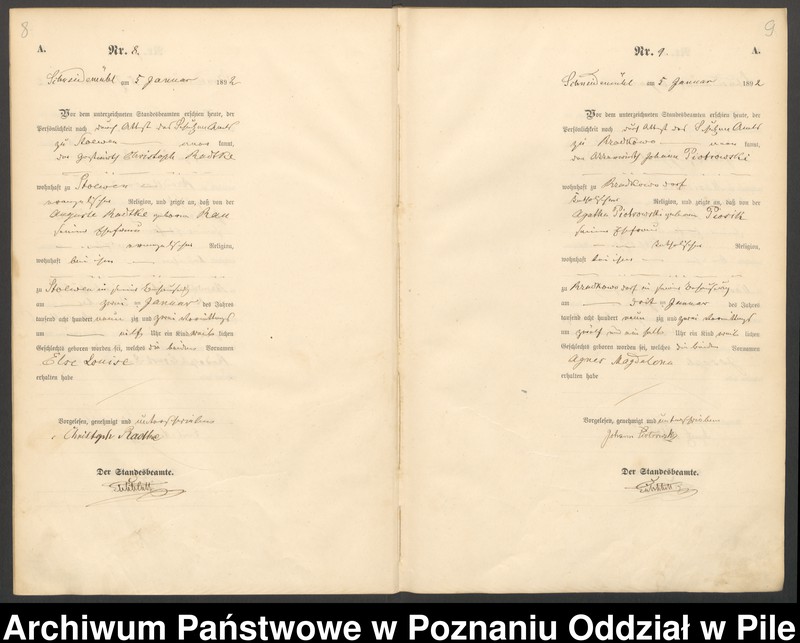 8
A.
Nr. 8.
Schneidemühl am 5 Januar 1892
Vor dem unterzeichneten Standesbeamten erschien heute, der
Persönlichkeit nach durch Attest des Schulzen Amts
zu Stoewen kannt,
der Christoph Radtke
wohnhaft zu Stoewen
evangelischer Religion, und zeigte an, daß von der
Auguste Radtke geborene Rau
seiner Ehefrau
evangelischer Religion,
wohnhaft bei ihm
zu Stoewen in seiner Behausung
am zwei ten Januar des Jahres
tausend acht hundert neun zig und zwei Vormittags
um elf Uhr ein Kind weiblichen
Geschlechts geboren worden sei, welches die beiden Vornamen
Else Louise
erhalten habe
Vorgelesen, genehmigt und unterschrieben
Christoph Radtke
Der Standesbeamte.
9
Nr. 9.
A.
Schneidemühl am 5 Januar 1892
Vor dem unterzeichneten Standesbeamten erschien heute, der
Persönlichkeit nach durch Attest des Schulzen Amts
zu Bradkowo kannt,
der Johann Piotrowski
wohnhaft zu Bradkowo dorf
katholischer Religion, und zeigte an, daß von der
Agathe Piotrowski geborene Piosik
seiner Ehefrau
katholischer Religion,
wohnhaft bei ihm
zu Bradkowo dorf in seiner Behausung
am drit ten Januar des Jahres
tausend acht hundert neun zig und zwei Vormittags
um Uhr ein Kind weiblichen
Geschlechts geboren worden sei, welches die beiden Vornamen
Agnes Magdalena
erhalten habe
Vorgelesen, genehmigt und unterschrieben
Johann Piotrowski
Der Standesbeamte.
Archiwum Państwowe w Poznaniu Oddział w Pile